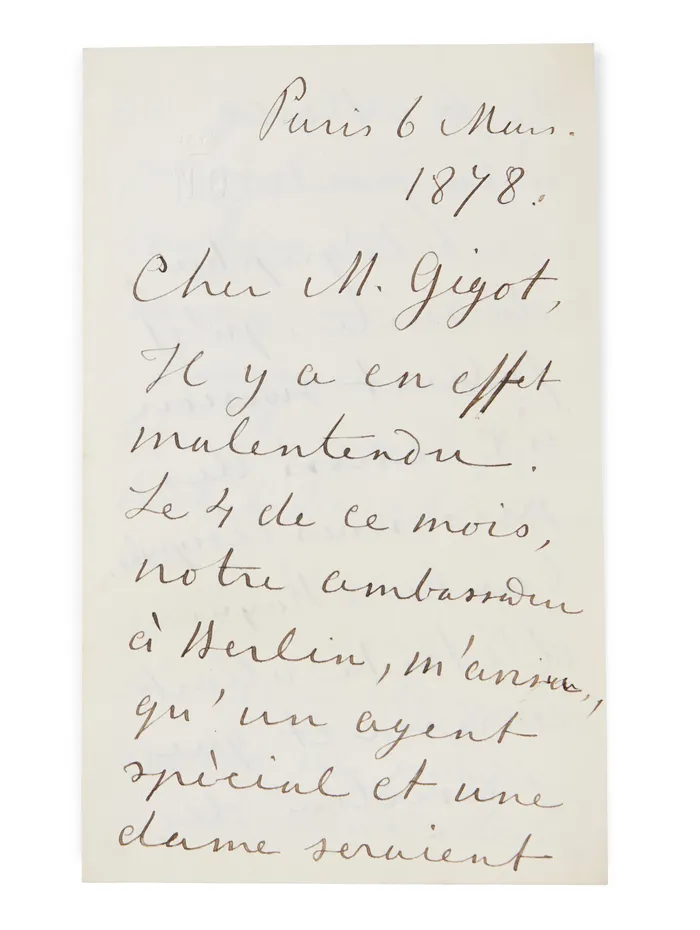 Paris 6 Mars.
1878.
Cher M. Gigot,
Il y a en effet
malentendu.
Le 4 de ce mois,
notre ambassadeur
à Berlin, m'avisa,
qu'un agent
spècial et une
dame seraient